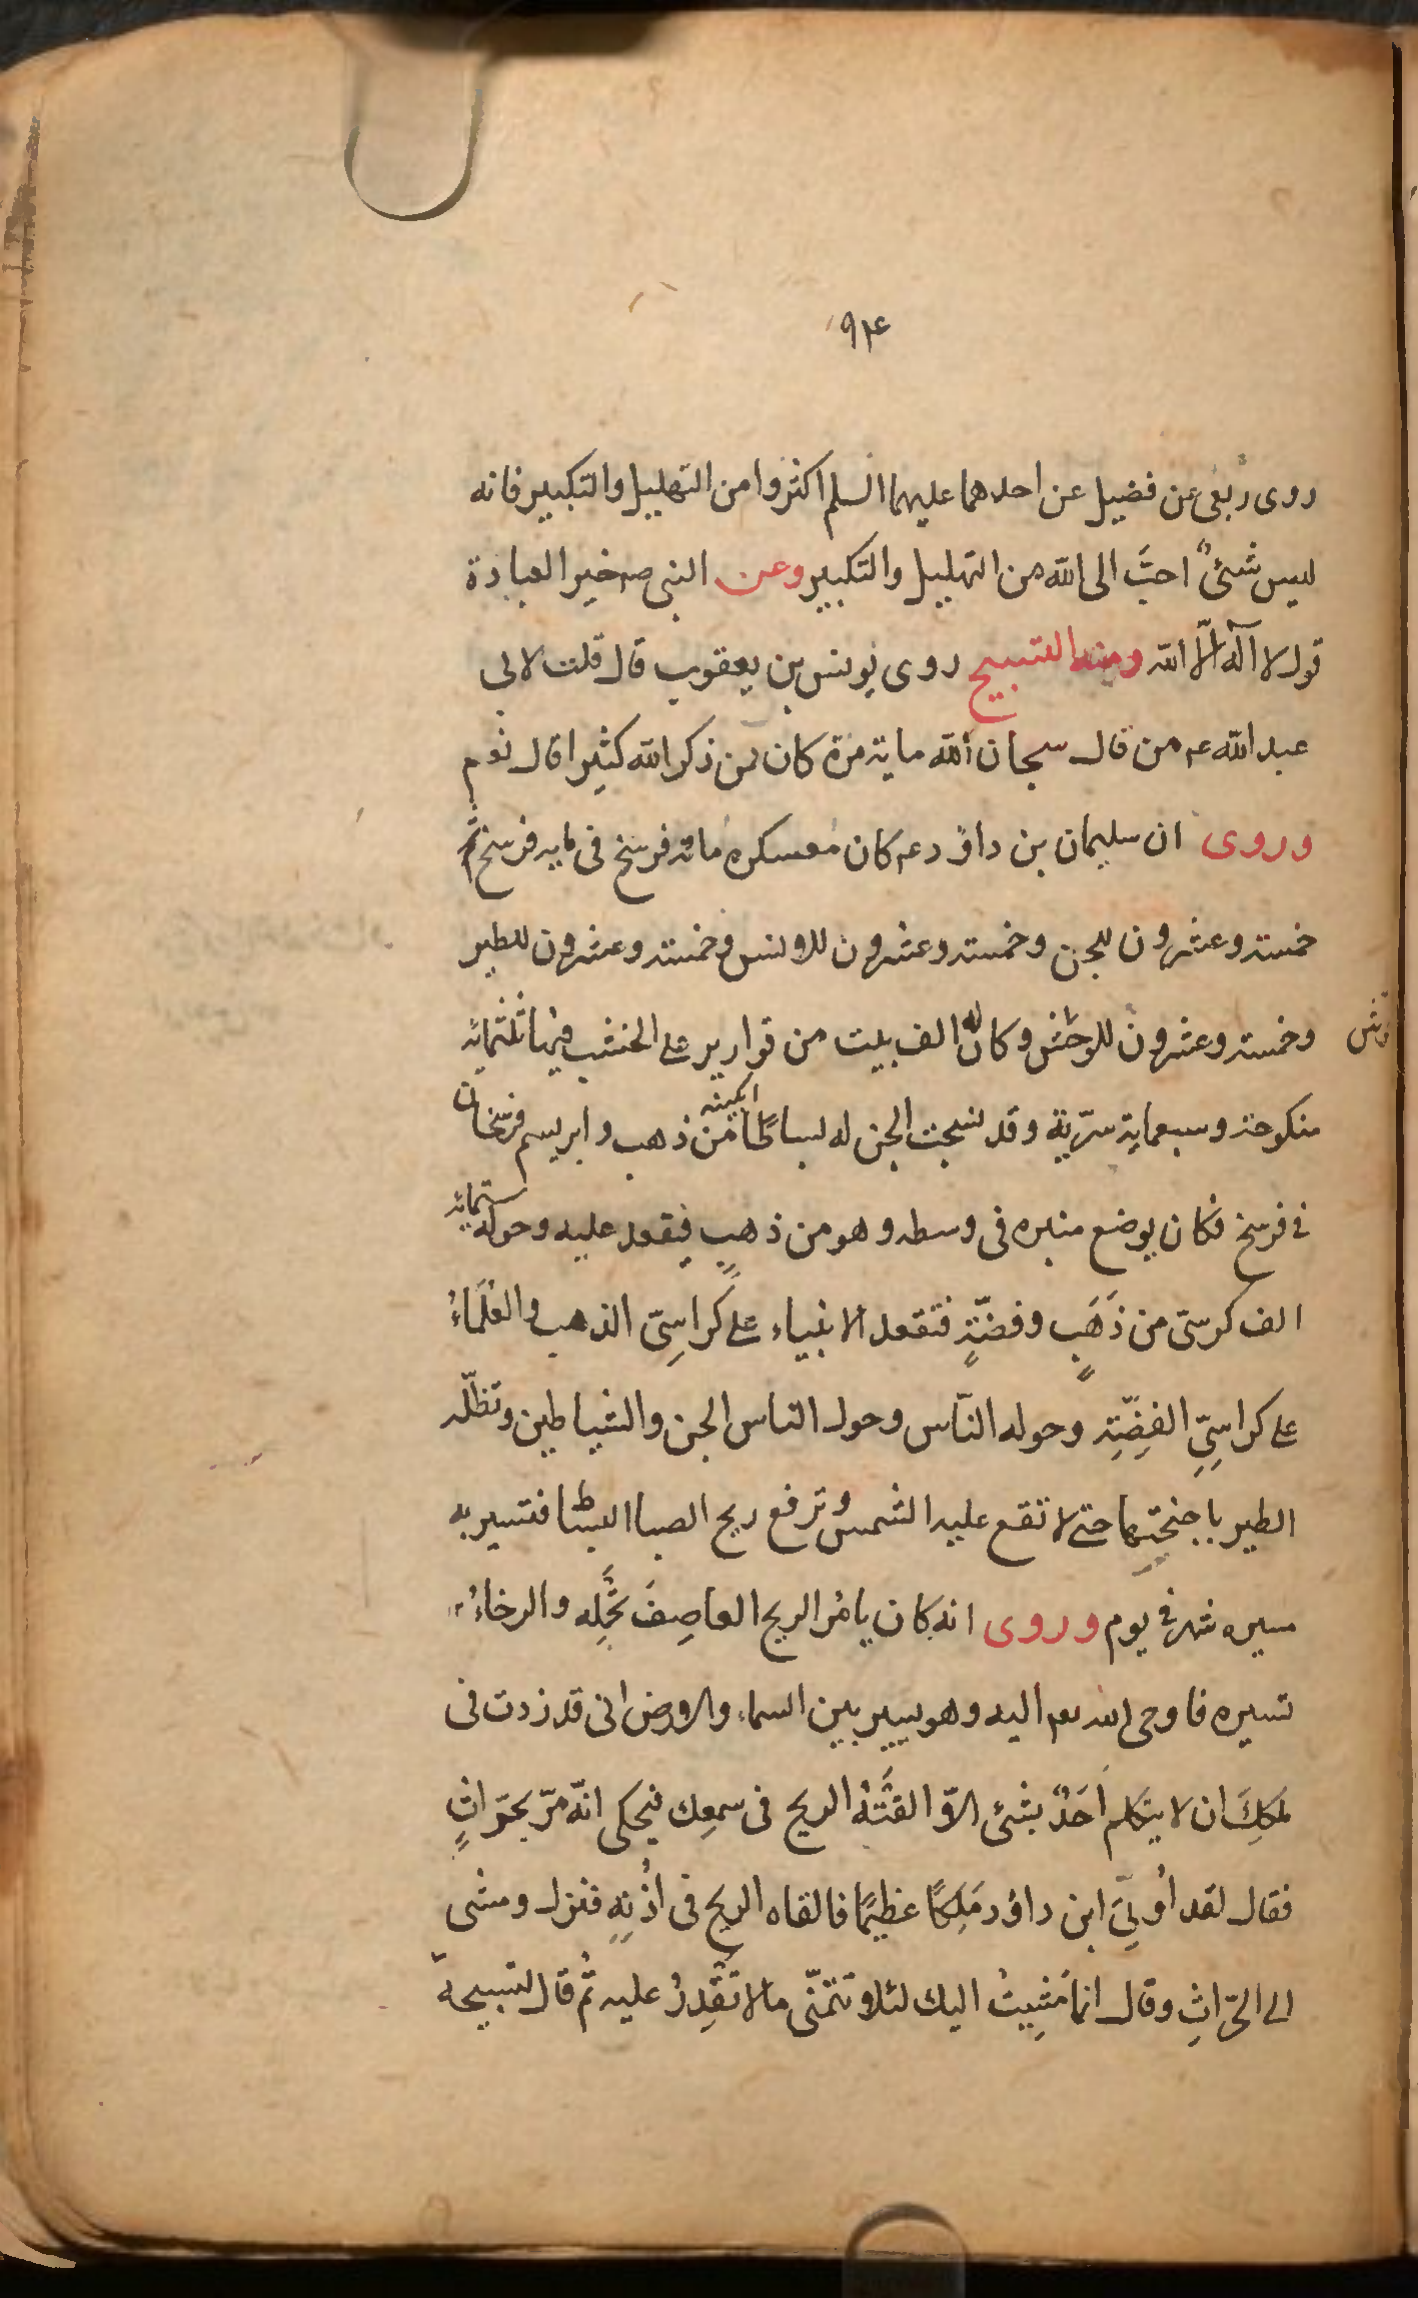 ٩٤
روى ربعى عن فضيل عن احدهما عليهما السلم اكثروا من التهليل والتكبير فانه
ليس شئ احبَّ الى الله من التهليل والتكبير وعن النبى صم خير العبادة
قول لا اله الّا الله ومنه التسبيح روى يونس بن يعقوب قال قلت لابى
عبد الله عم من قال سبحان الله ماية مرة كان ممن ذكر الله كثيرا قال نعم
وروى ان سليمان بن داؤد عم كان معسكره مائة فرسخ فى مايه فرسخ
خمسة وعشرون للجن وخمسة وعشرون للانس وخمسة وعشرون للطير
وخمسة وعشرون للوحش وكان له الف بيت من قوارير على الخشب فيها ثلثمائة
منكوحة وسبعماية سرّية وقد نسجت الجن له بساطًا من ذهب وابريسم فرسخان
فى فرسخ فكان يوضع منبره فى وسطه وهو من ذهبٍ فيقعد عليه وحوله ستمائه
الف كرسىّ من ذَهَبٍ وفضّةٍ فتقعد الانبياء على كَراسِىّ الذهب والعُلَماءُ
على كراسِىِّ الفِضّةِ وحوله النّاس وحول الناس الجن والشياطين وتظلّه
الطير باجنحتِها حتى لا تقع عليه الشمس وترفع ريح الصبا البساط فتسير به
مسيره شهر فى يوم وروى انه كان يامُر الريح العاصِفَ تَحْمِله والرخاءُ
تسيره فاوحى الله تعم اليه وهو يسير بين السماء والارض انى قد زدت فى
مُلكِكَ ان لا يتكلم اَحَدٌ بشئ الّا القَتْهُ الريح فى سمعِك فيحكى انّه مرّ بحرّاثٍ
فقال لقد اُوتِىَ ابن داؤد مُلكًا عظيمًا فالقاه الريح فى اُذُنِهِ فنزل ومشى
الى الحرّاثِ وقال انما مَشِيتُ اليك لئلا تتمنّى ما لا تَقْدِرُ عليه ثُمّ قال لتسبيحة